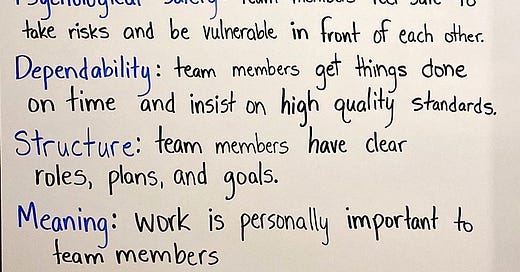 Psychological Safety: team members feel safe to
take risks and be vulnerable in front of each other.
Dependability: team members get things done
on time and insist on high quality standards.
Structure: team members have clear
roles, plans, and goals.
Meaning: work is personally important to
team members